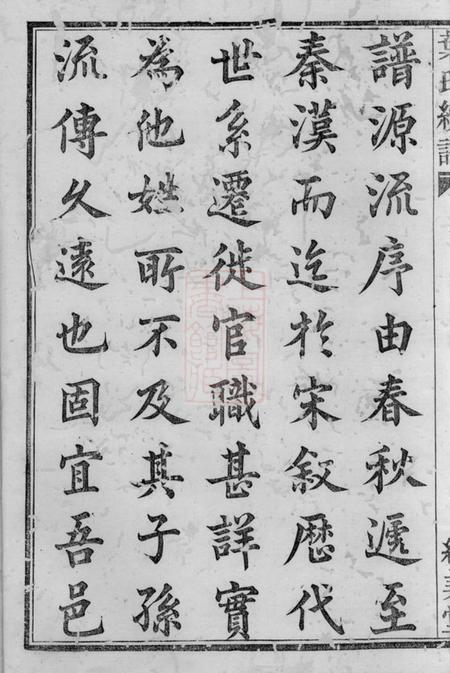 譜源流序由春秋遞至
秦漢而迄於宋敘歷代
世系遷徙官職甚詳實
為他姓所不及其子孫
流傳久遠也固宜吾邑